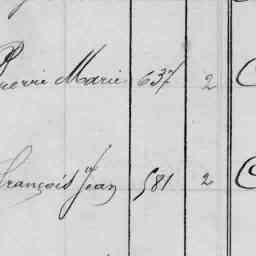 Pierre Marie 637 2
François Jean 581 2